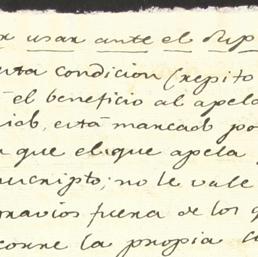 usar ante el Sup
esta condicion (repito
el beneficio al apela
está marcado po
que el que apela
inscripto; no le vale
gravios fuera de los q
corre la propia